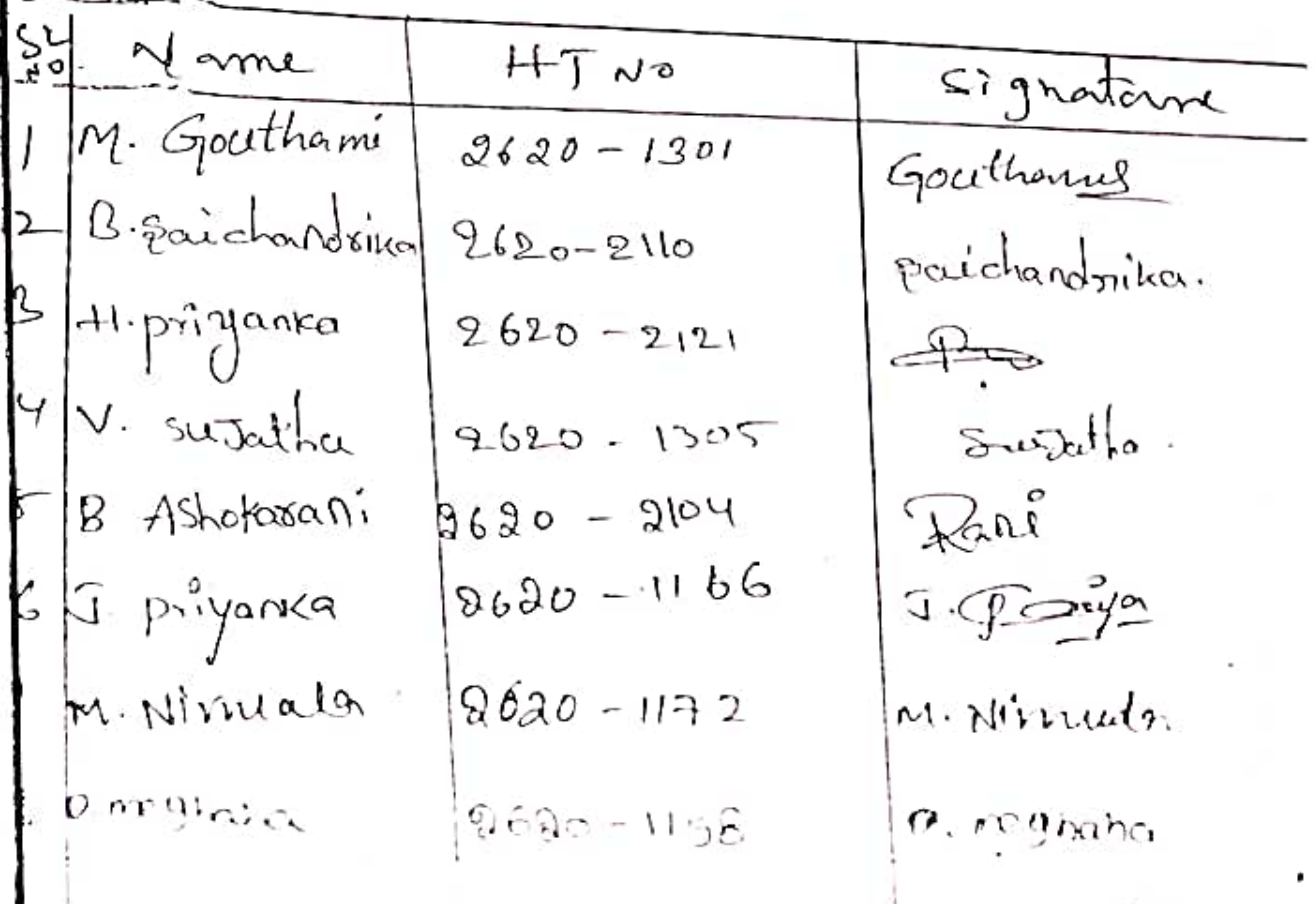 SL no Name HT No Signature
1 M. Gouthami 2620 - 1301 Gouthami
2 B. Saichandrika 2620-2110 Saichandrika.
3 H. priyanka 2620 - 2121
4 V. suJatha 2620 - 1305 SuJatha.
5 B Ashokarani 2620 - 2104 Rani
6 J. priyanka 2620 - 1166 J. Priya
M. Nirmala 2620 - 1172 M. Nirmala
2620 - 11